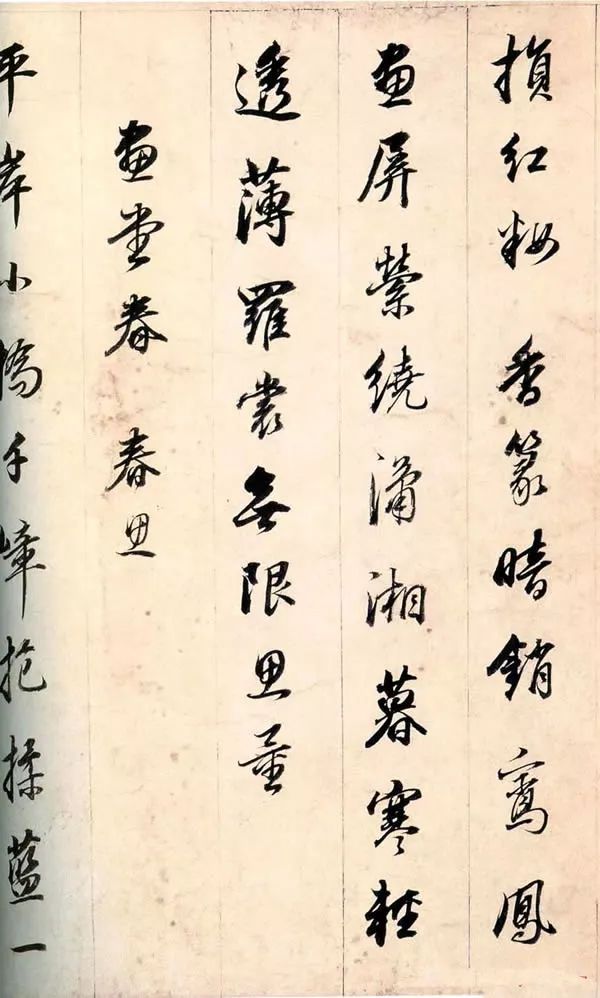 損紅粧香篆暗銷鸞鳳
畫屏縈繞瀟湘暮寒輕
透薄羅裳無限思量
畫堂春 春思
平岸小橋千嶂抱揉藍一